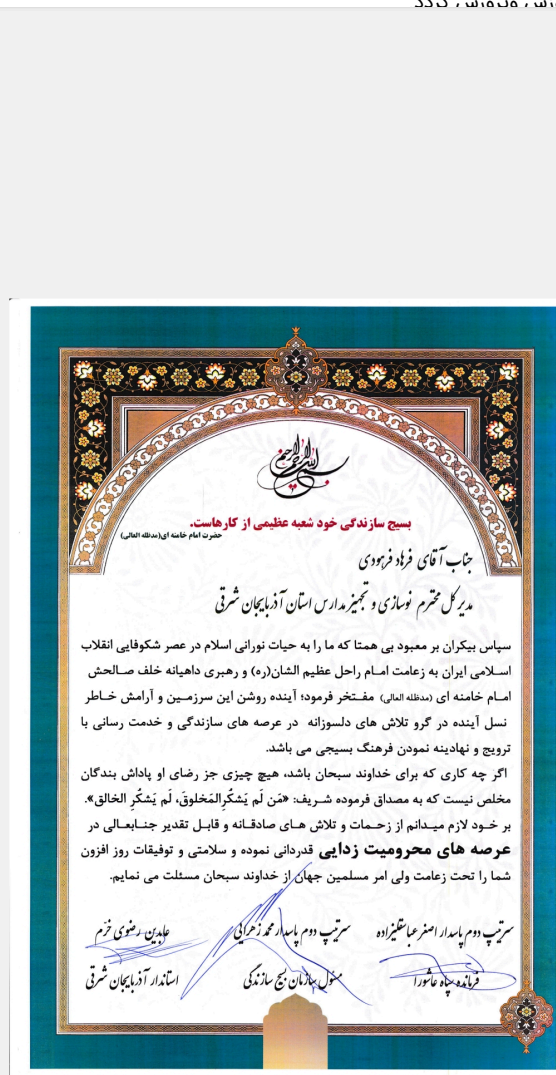 بسم الله الرحمن الرحیم
بسیج سازندگی خود شعبه عظیمی از کارهاست.
حضرت امام خامنه ای(مدظله العالی)
جناب آقای فرهاد فرهودی
مدیر کل محترم نوسازی و تجهیز مدارس استان آذربایجان شرقی
سپاس بیکران بر معبود بی همتا که ما را به حیات نورانی اسلام در عصر شکوفایی انقلاب
اسلامی ایران به زعامت امام راحل عظیم الشان(ره) و رهبری داهیانه خلف صالحش
امام خامنه ای (مدظله العالی) مفتخر فرمود؛ آینده روشن این سرزمین و آرامش خاطر
نسل آینده در گرو تلاش های دلسوزانه در عرصه های سازندگی و خدمت رسانی با
ترویج و نهادینه نمودن فرهنگ بسیجی می باشد.
اگر چه کاری که برای خداوند سبحان باشد، هیچ چیزی جز رضای او پاداش بندگان
مخلص نیست که به مصداق فرموده شریف: «مَن لَم یَشکُرِالمَخلوقَ، لَم یَشکُرِ الخالق».
بر خود لازم میدانم از زحمات و تلاش های صادقانه و قابل تقدیر جنابعالی در
عرصه های محرومیت زدایی قدردانی نموده و سلامتی و توفیقات روز افزون
شما را تحت زعامت ولی امر مسلمین جهان از خداوند سبحان مسئلت می نمایم.
سرتیپ دوم پاسدار اصغر عباسقلیزاده
فرمانده سپاه عاشورا
سرتیپ دوم پاسدار محمد زهرائی
مسئول سازمان بسیج سازندگی
عابدین رضوی خرم
استاندار آذربایجان شرقی